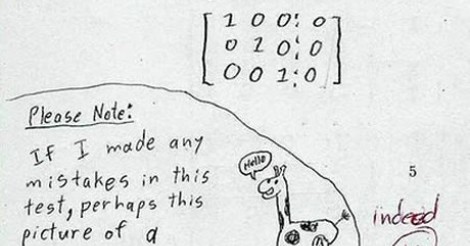 1 0 0 ⋮ 0
0 1 0 ⋮ 0
0 0 1 ⋮ 0
Please Note:
If I made any
mistakes in this
test, perhaps this
picture of a
Hello
5
indeed